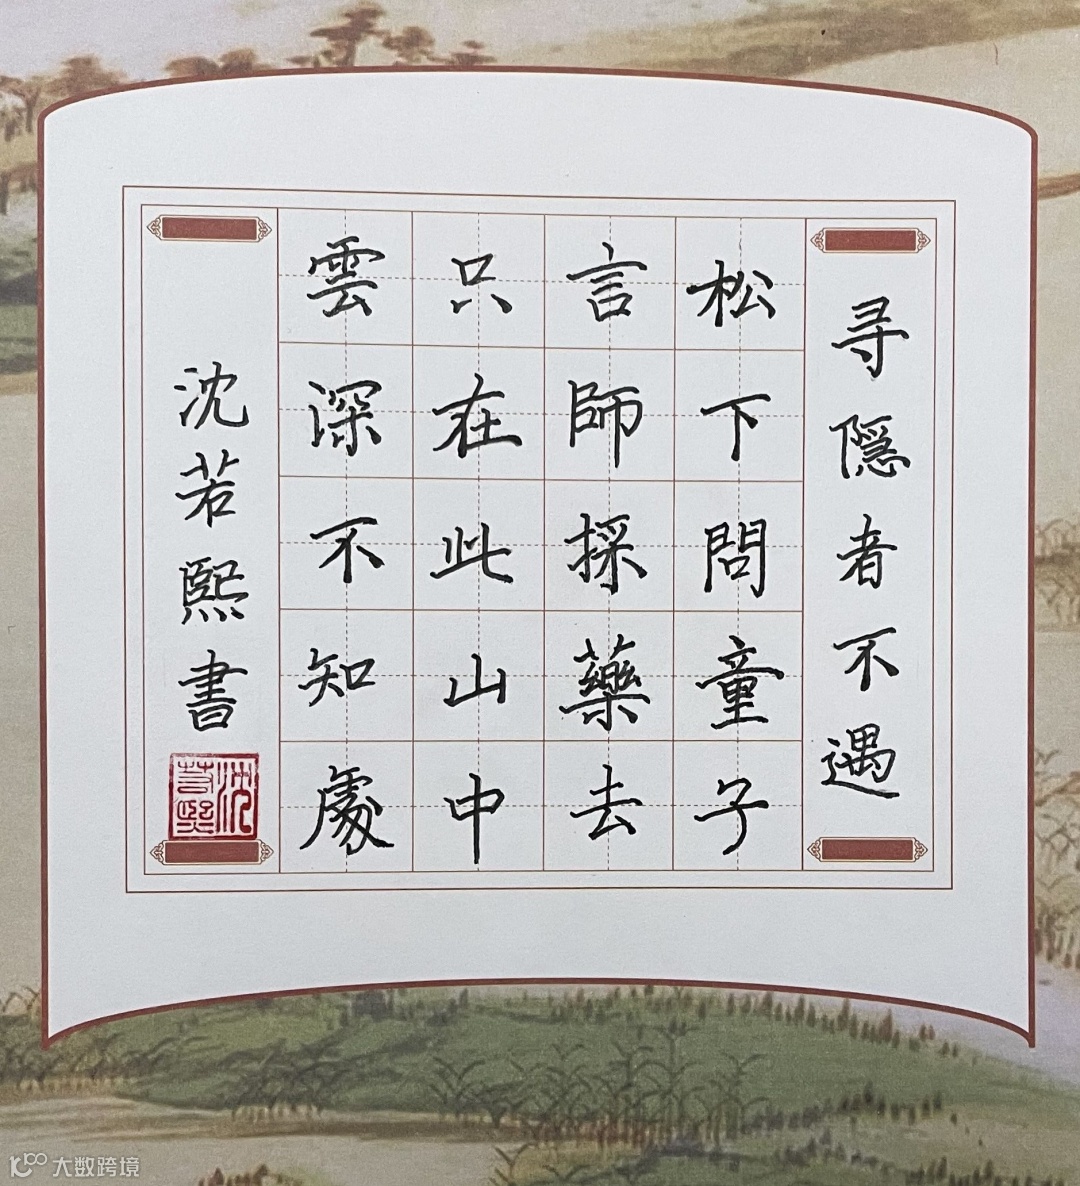 寻隱者不遇
松下問童子
言師採藥去
只在此山中
雲深不知處
沈若熙書
沈若熙
大数跨境